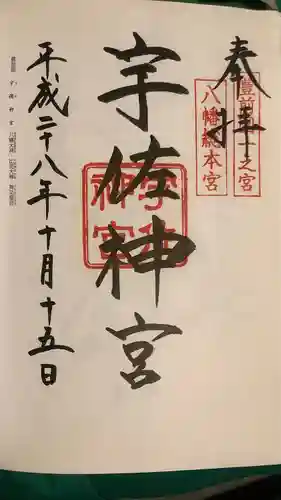 奉拝
豊前国一之宮
八幡総本宮
宇佐神宮
宇佐神宮
平成二十八年十月十五日